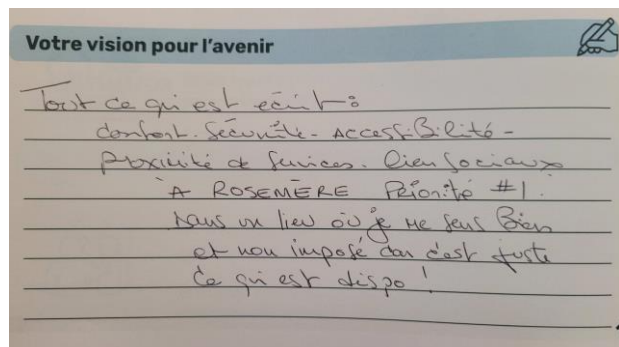 Votre vision pour l'avenir
Tout ce qui est écrit :
Confort. Sécurité - Accessibilité -
Proximité de services. Liens sociaux
À ROSEMÈRE Priorité #1.
Dans un lieu où je me sens bien
et non imposé car c'est juste
ce qui est dispo !